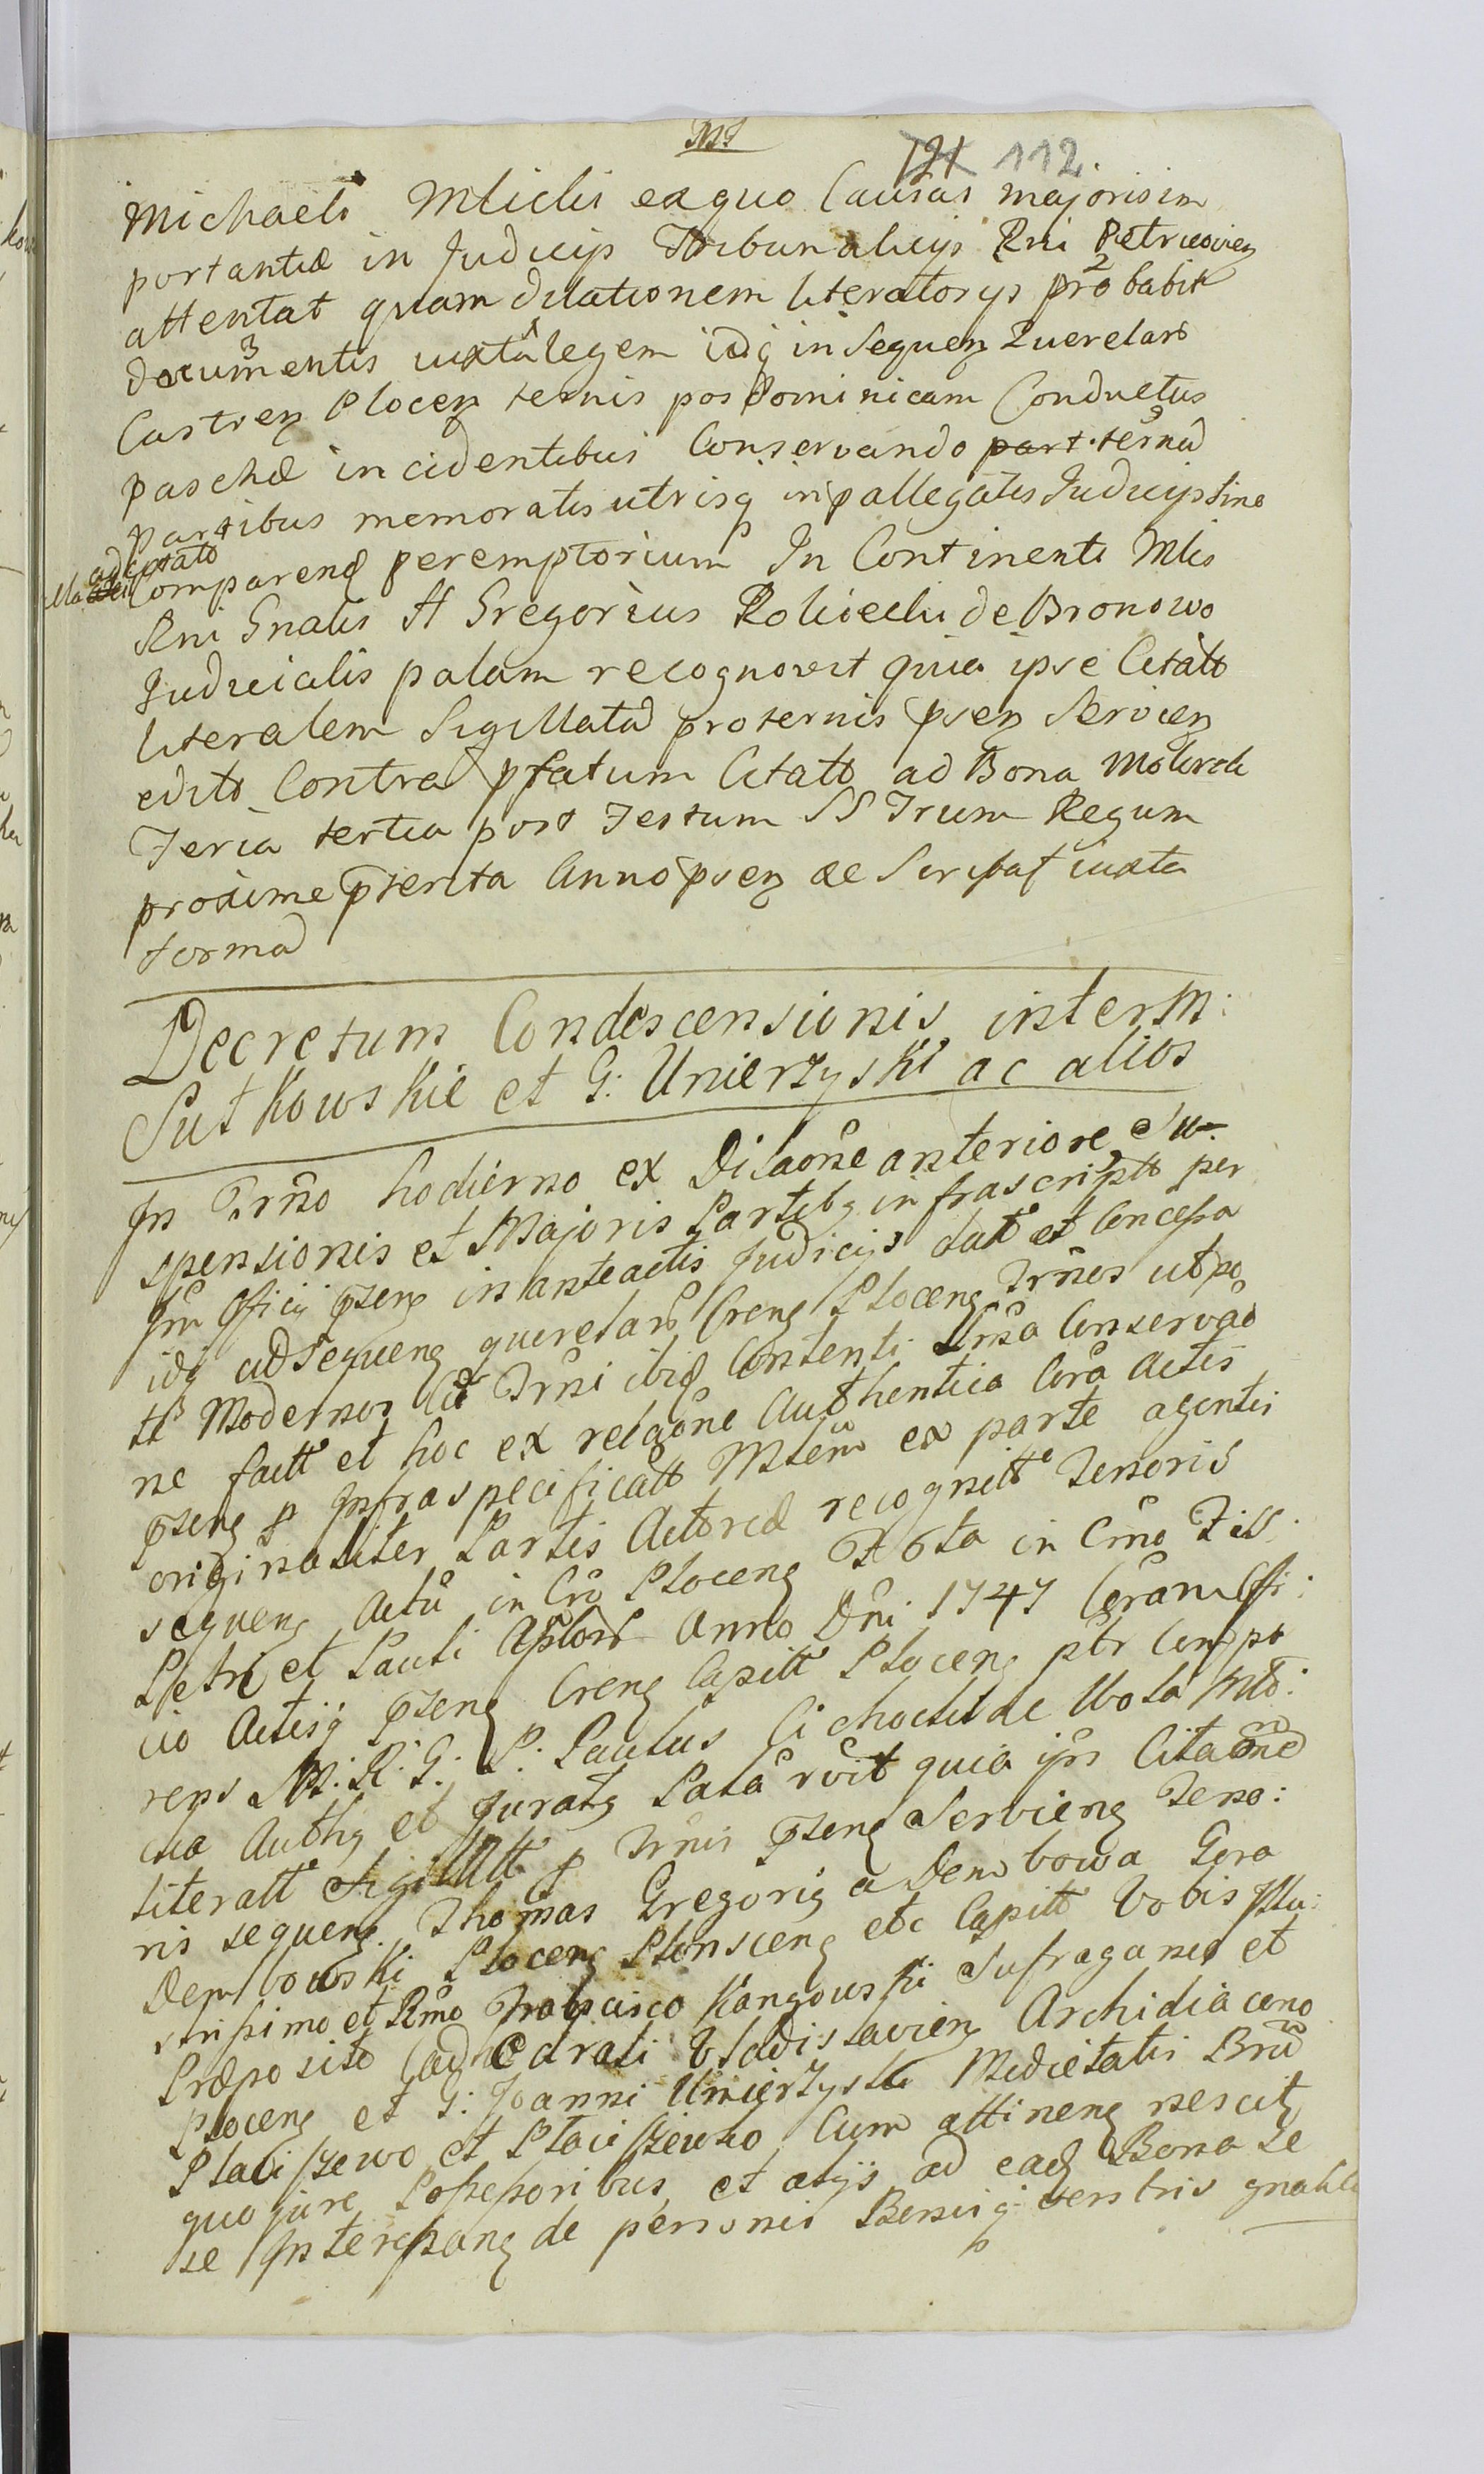 121 112.
Michaeli Mliclis ex quo Causas majoris im
portantiæ in Judicijs Tribunalicijs Rni Petricovien
attentat quam dilationem literatorijs probabit
documentis iuxta legem idq in Sequen Querelarū
Castren Plocen ternis pos Dominicam Conductus
paschæ incidentibus Conservando part. ternū
partibus memoratis utrisq in pallegatis Judicijs sine
ad citato
Comparend peremptorium In Continenti Mlis
Rni Gnalis H Gregorius Rokicchi de Bronowo
Judicialis palam recognovit quia ipse Citatt
literalem Sigillatā pro ternis psen Servien
edito Contra pfatum Citatt ad Bona
Feria tertia post Festum SS Trium Regum
proxime pterita Anno psen de Script iuxta
formā
Decretum Condescensionis inter M:
Sutkowskie et G: Umierzyski ac alios
In Trno hodierno ex Dilaone anteriore Su-
spensionis et Majoris Partibq infrascriptt per
Jm Officij psens in anteactis Judicijs datt et Concessa
idq ad sequenq querelarū Crenq Plocenq Trnos utpo
tt Modernos Trni ibiq Contenti Conservao
ne factt et hoc ex relaone Authentica Cora Actis
psenq p Infraspecificatt Mtem ex parte agentis
originaliter Partis Actoreæ recognitt Tenoris
sequenq Actū in Cro Plocenq Fta 6ta in Cmo Fest
Petri et Pauli Aplorū Anno Dni 1747 Coram Offi:
cio Actisq psenq Crenq Capitt Plocenq ptr Compa
rens M: R: G: P: Paulus Cichochi de Wola
Authq et Juratq Pala rvit quia ips Citaone
literatt Sigillatt p Trnis psenq Servienq Teno:
ris sequenq. Thomas Gregoriq a Dembowa Gora
Dembowski Plocenq Plonscenq etc Capitt Vobis Illu:
strissimo et Rmo Francisco Kangowski Sufraganeo et
Præposito Cathedrali Vladislavienq Archidiacono
Plocenq et G: Joanni Umierzyski Medietatis Bru
Placiszewo et Placiszewko Cum attinenq nescitq
quo jure Possessoribus et alijs ad eadq Bona Se
se Interessanq de personis Bonisq vestris gnalit